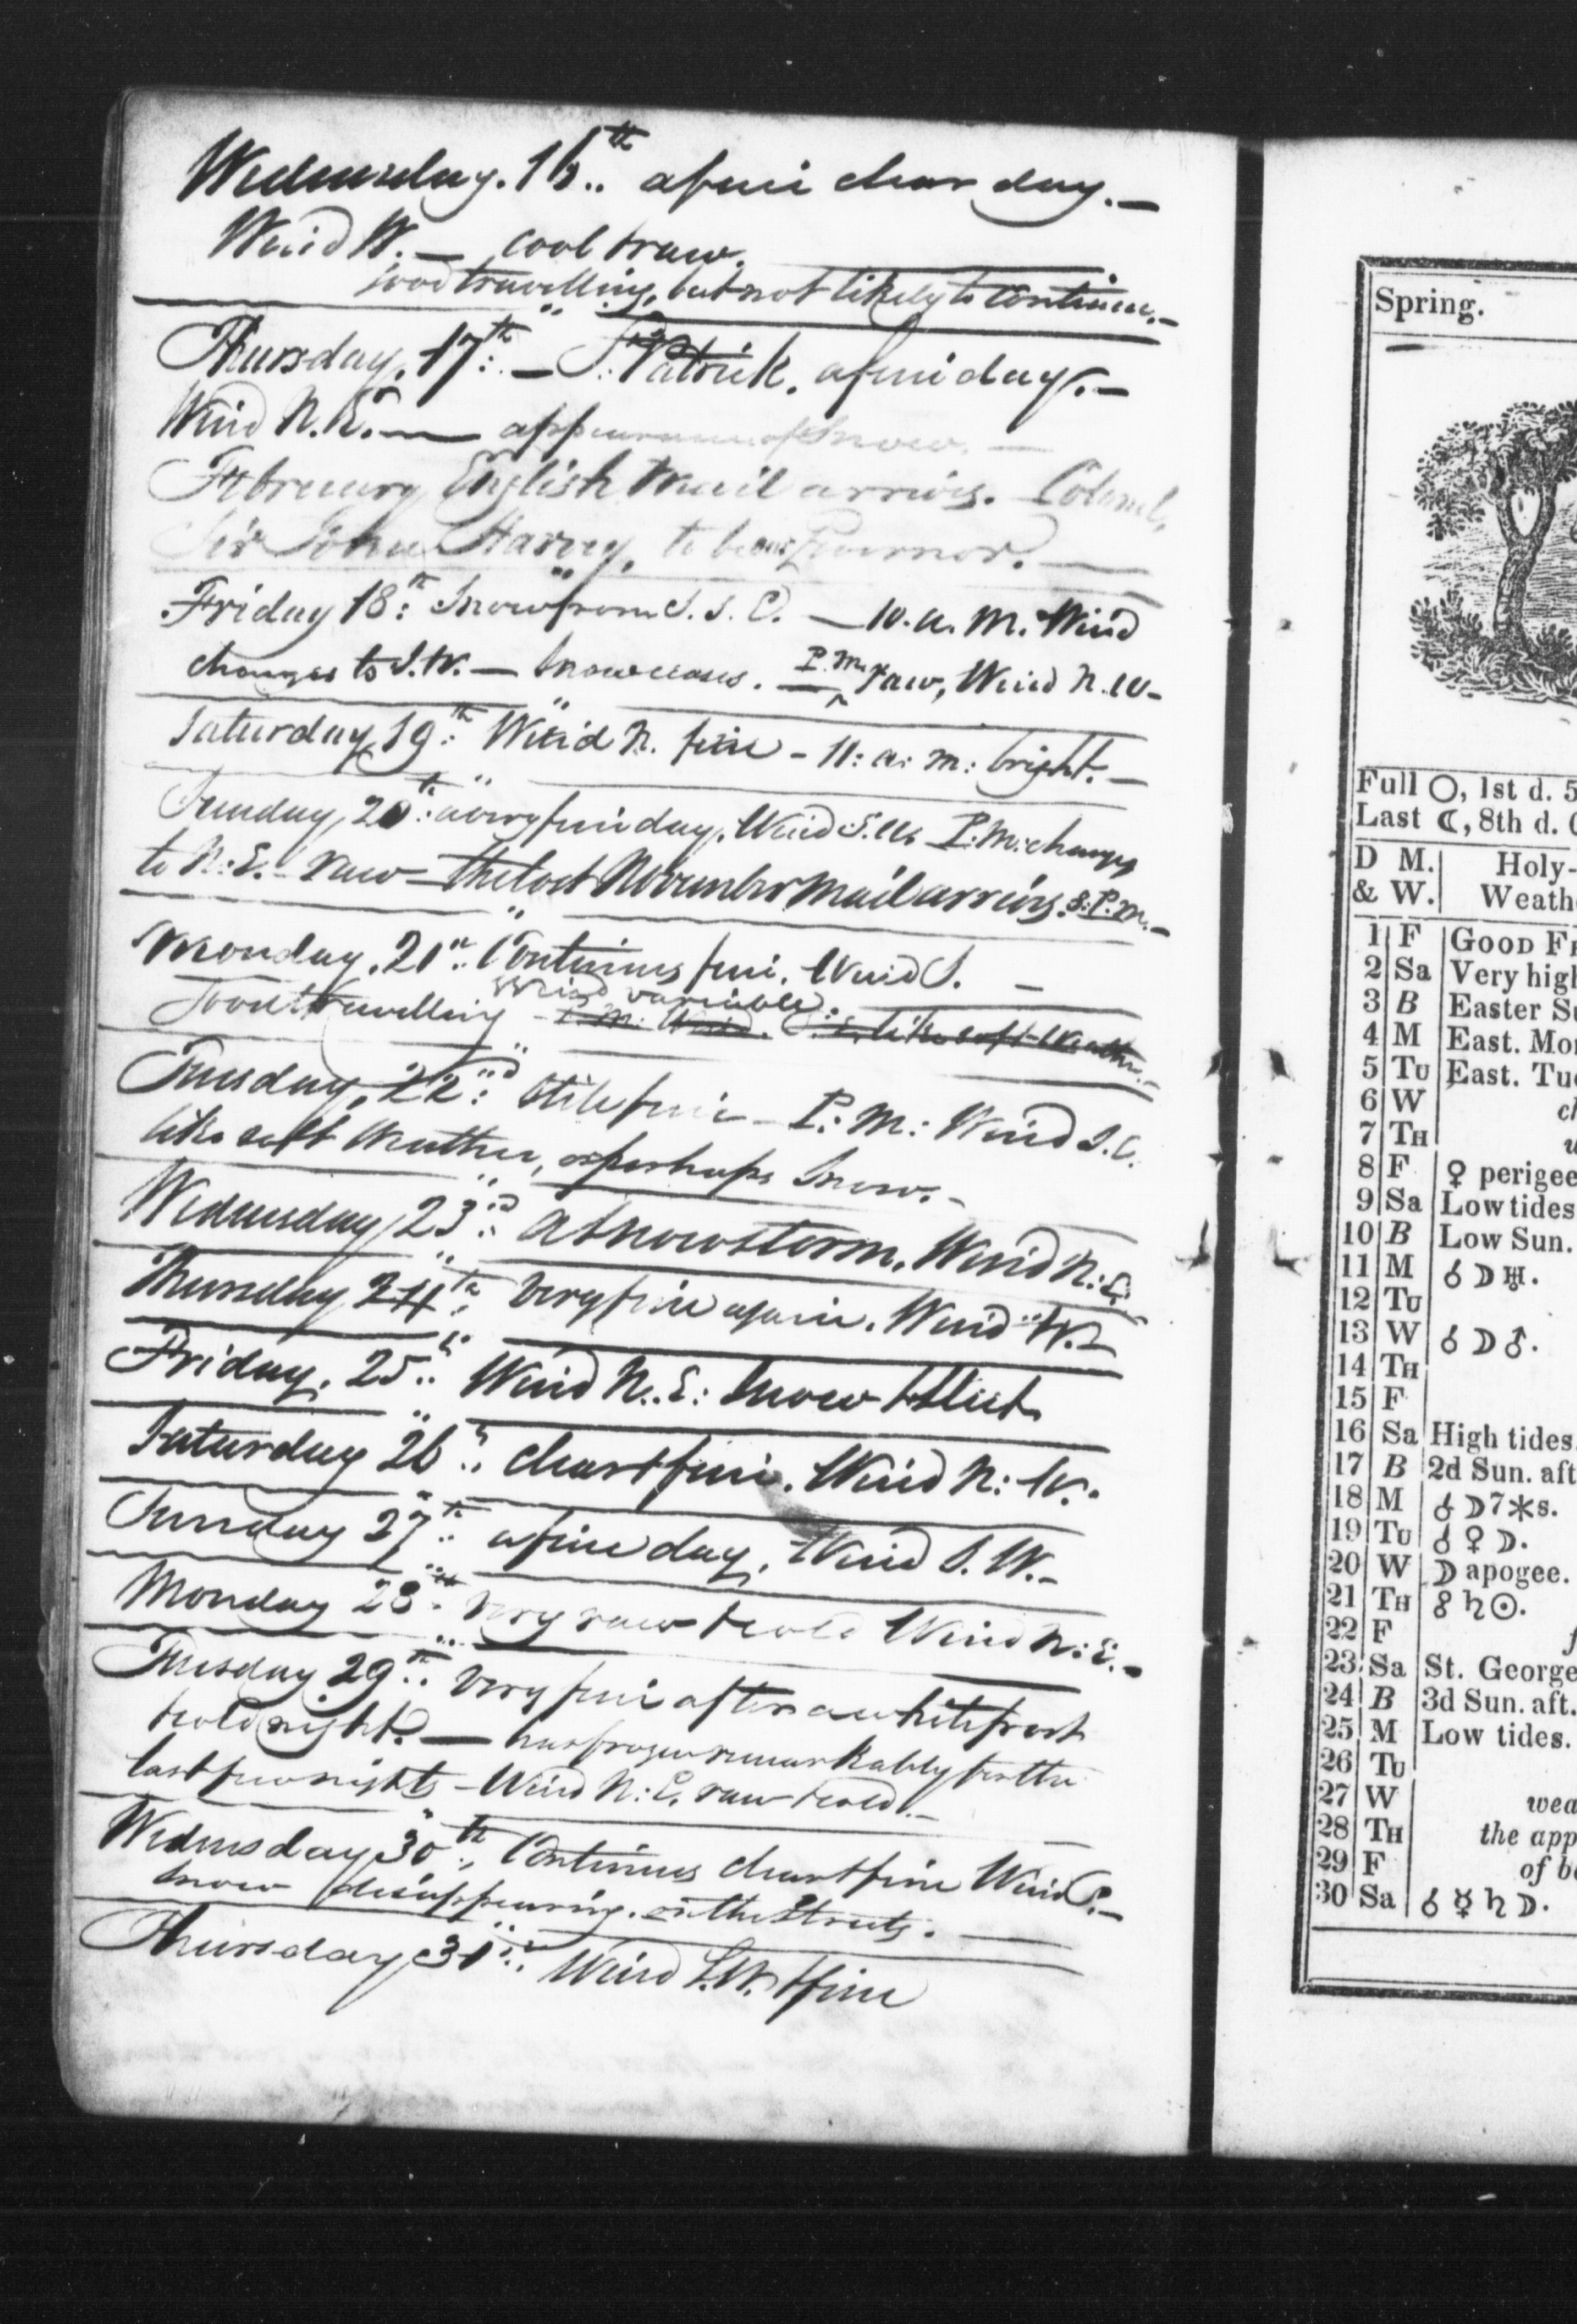 Wednesday. 16th.. a fine clear day. —
Wind W. — cool & raw.
Good travelling, but not likely to continue. —
Thursday, 17th: — St. Patrick. a fine day. —
Wind N. E. — appearance of Snow. —
February English Mail arrives. Colonel,
Sir John Harvey, to be our Governor. —
Friday 18th: Snow from S. S. E. — 10. a. m. Wind
changes to S. W. — Snow ceases. P.M. raw, Wind N. W —
Saturday, 19th: Wind N. fine - 11: a: m: bright. —
Sunday, 20th: a very fine day. Wind S.W. P.M: changes
to N: E. - raw — the lost November Mail arrives. 8: P.M. —
Monday, 21st: Continues fine. Wind S. —
Good travelling - Wind variable.
P.M: Wind. S: E, like soft Weather. —
Tuesday, 22nd: Still fine - P: M: Wind S. E.
like soft Weather, or perhaps Snow. -
Wednesday, 23d: a Snow storm, Wind N: E.
Thursday 24th: very fine again. Wind W.
Friday, 25th: Wind N. E: Snow & Sleet.
Saturday 26th: clear & fine. Wind N: W.
Sunday 27th: a fine day, Wind S. W. -
Monday 28th: very raw & cold Wind N: E. -
Tuesday 29th: very fine after a white frost
& cold night. — has frozen remarkably for the
last few nights - Wind N: E. raw & cold. —
Wednesday 30th: Continues clear & fine Wind S. —
Snow disappearing, in the Streets. —
Thursday 31st: Wind S.W. & fine
Spring.
Full ○, 1st d. 5
Last ☾, 8th d.
D M. | Holy-
& W. | Weath
1 F GOOD F
2 Sa Very high
3 B Easter S
4 M East. Mo
5 TU East. Tu
6 W
7 TH
8 F ♀ perigee
9 Sa Low tides
10 B Low Sun.
11 M ☌ ☽ ♅.
12 TU
13 W ☌ ☽ ♂.
14 TH
15 F
16 Sa High tides.
17 B 2d Sun. aft
18 M ☌ ☽ 7*s.
19 TU ☌ ♀ ☽.
20 W ☽ apogee.
21 TH ☍ ♄ ☉.
22 F
23 Sa St. George
24 B 3d Sun. aft.
25 M Low tides.
26 TU
27 W wea
28 TH the app
29 F of b
30 Sa ☌ ☿ ♄ ☽.